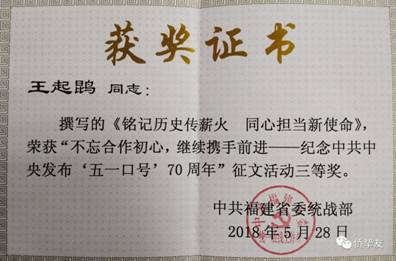 获奖证书
王起鹍 同志：
撰写的《铭记历史传薪火 同心担当新使命》，
荣获“不忘合作初心，继续携手前进——纪念中共中
央发布‘五一口号’70周年”征文活动三等奖。
中共福建省委统战部
2018年5月28日
侨挚友